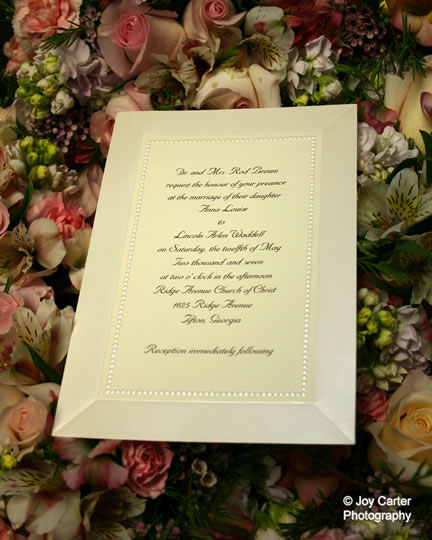 Dr and Mrs. Rod Brown
request the honour of your presence
at the marriage of their daughter
Anna Louise
to
Lincoln Arlen Waddell
on Saturday, the twelfth of May
Two thousand and seven
at two o'clock in the afternoon
Ridge Avenue Church of Christ
1625 Ridge Avenue
Tifton, Georgia
Reception immediately following
© Joy Carter
Photography